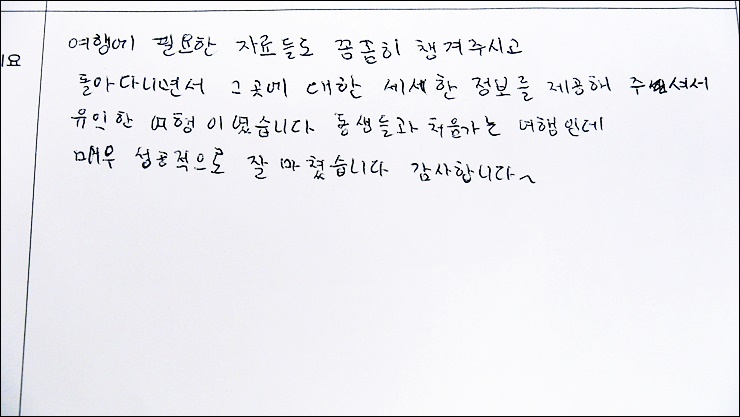 여행에 필요한 자료들도 꼼꼼히 챙겨주시고
기요
돌아다니면서 그곳에 대한 세세한 정보를 제공해 주셔서
유익한 여행이였습니다 동생들과 처음가는 여행인데
매우 성공적으로 잘 마쳤습니다 감사합니다~